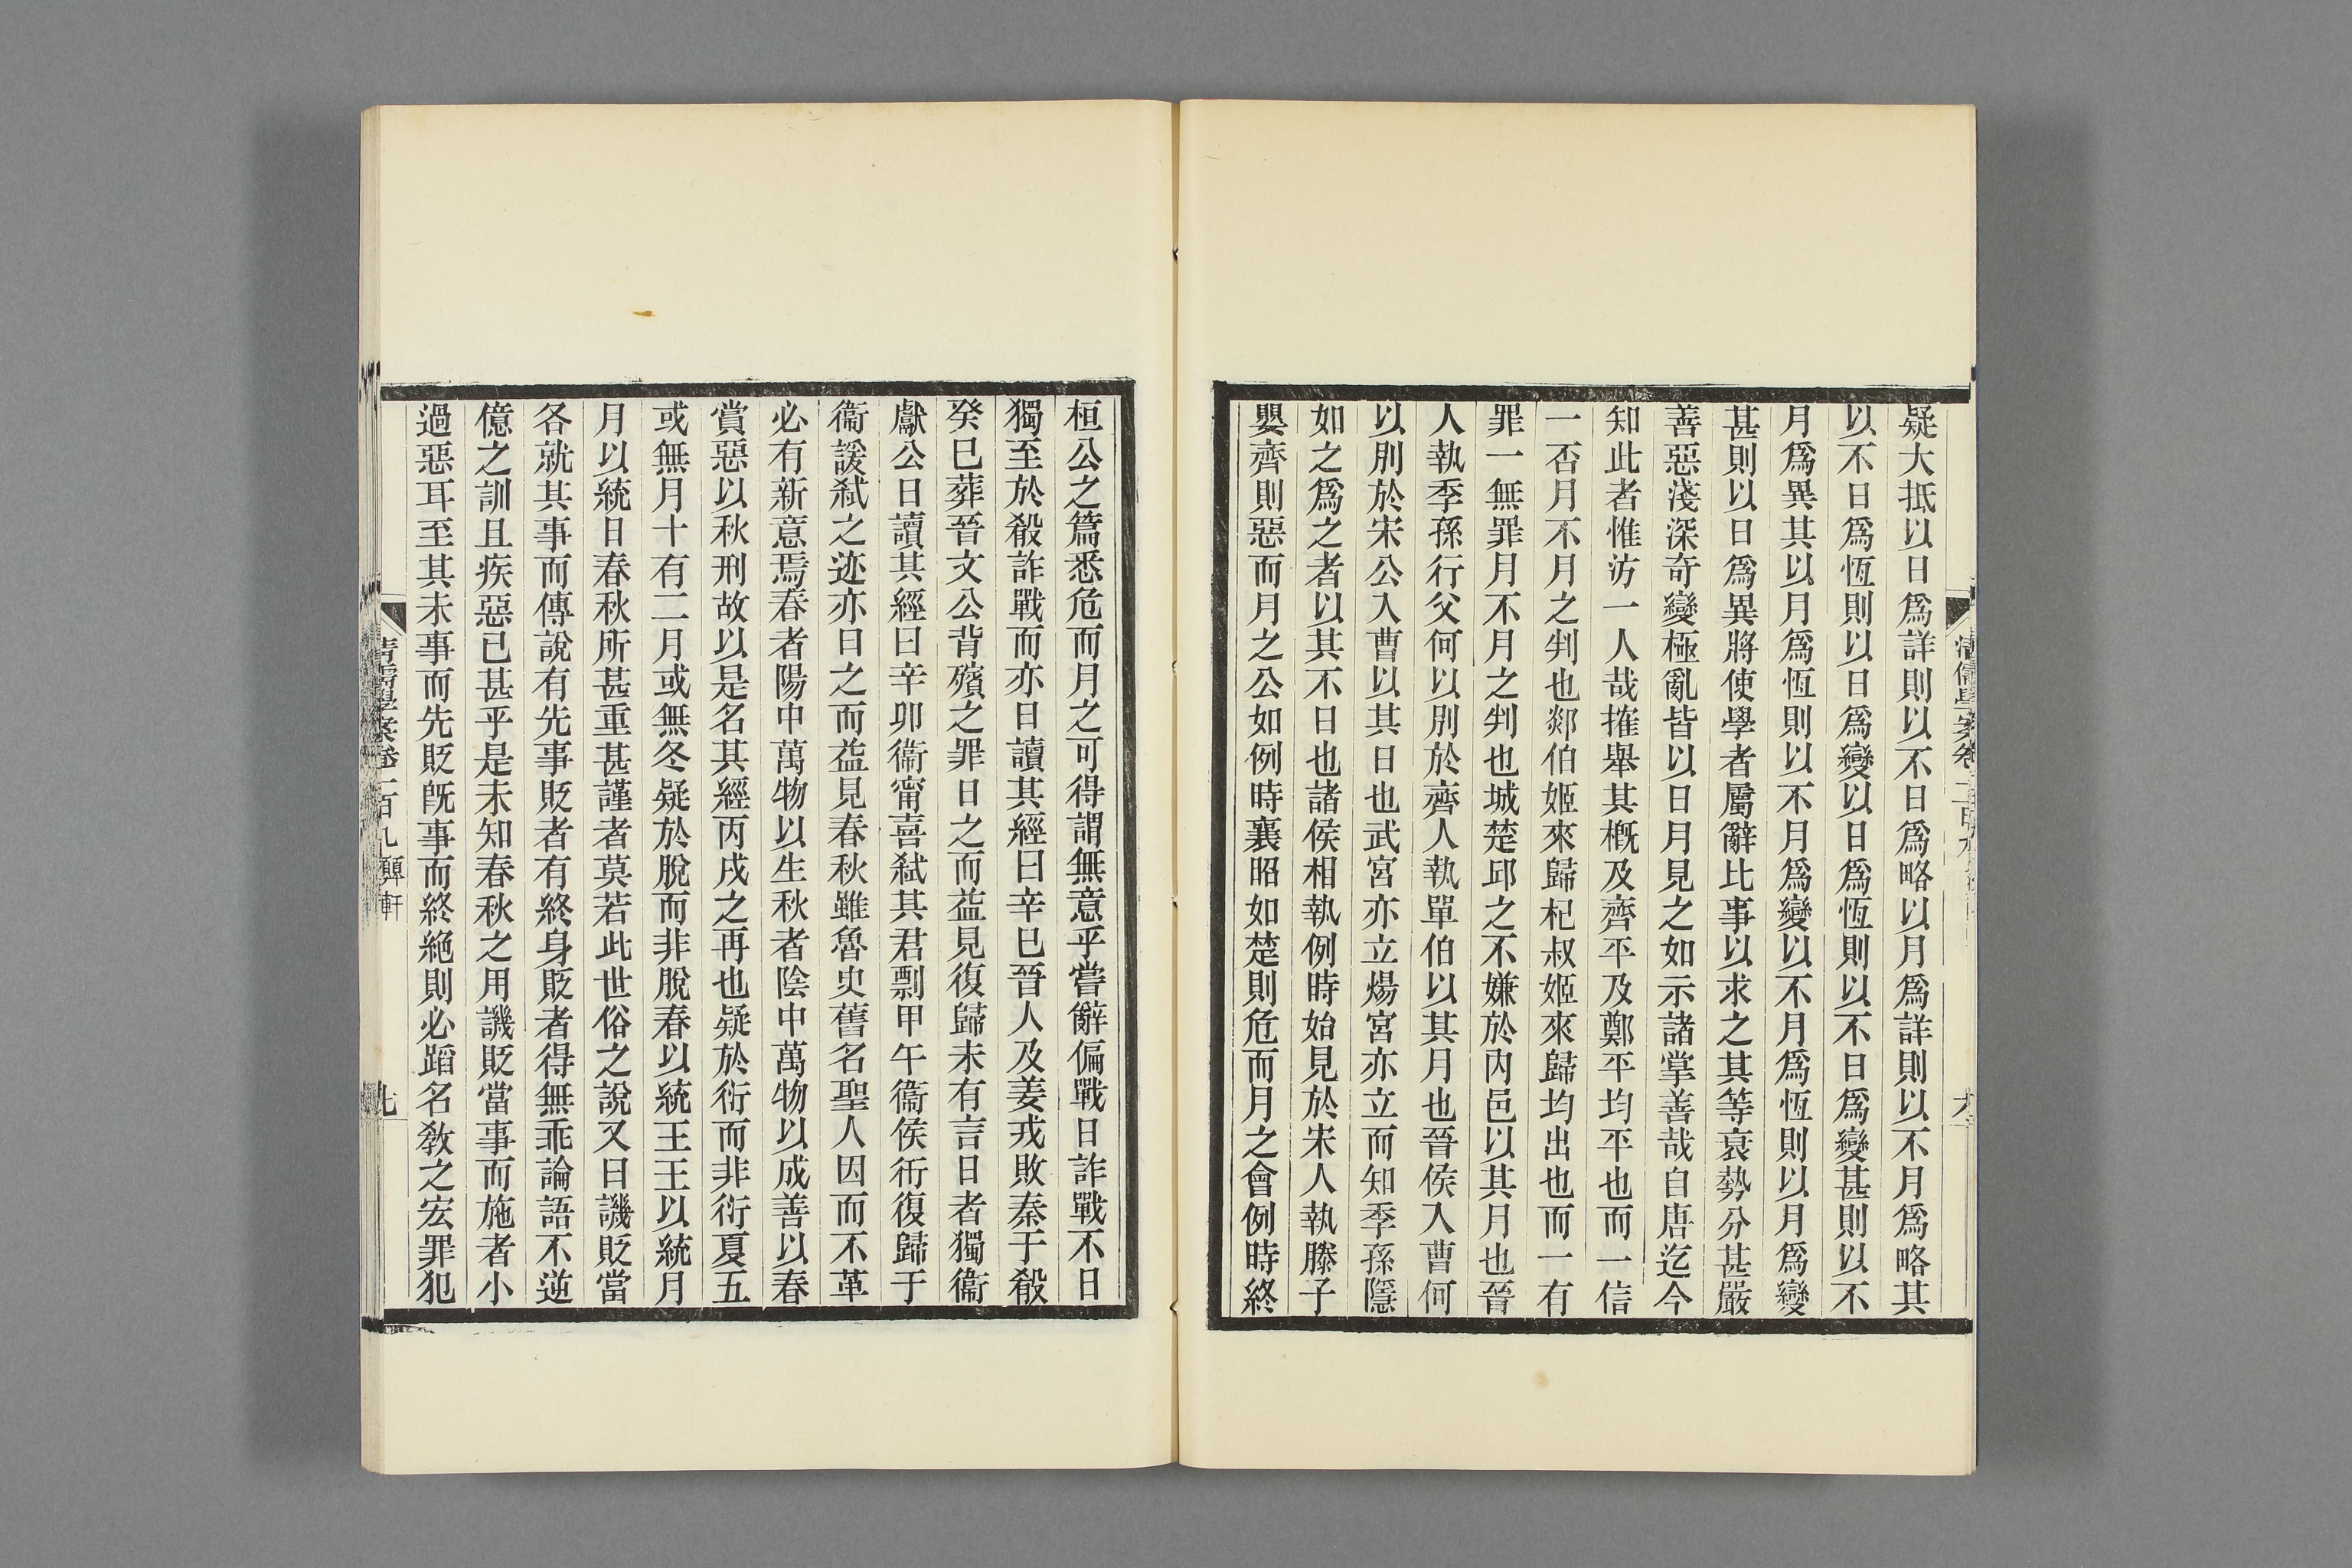 疑大抵以日爲詳則以不日爲略以月爲詳則以不月爲略其
以不日爲恆則以日爲變以日爲恆則以不日爲變甚則以不
月爲異其以月爲恆則以不月爲變以不月爲恆則以月爲變
甚則以日爲異將使學者屬辭比事以求之其等衰勢分甚嚴
善惡淺深奇變極亂皆以日月見之如示諸掌善哉自唐迄今
知此者惟汸一人哉搉舉其槪及齊平及鄭平均平也而一信
一否月不月之判也郯伯姬來歸杞叔姬來歸均出也而一有
罪一無罪月不月之判也城楚邱之不嫌於內邑以其月也晉
人執季孫行父何以別於齊人執單伯以其月也晉侯入曹何
以別於宋公入曹以其日也武宮亦立煬宮亦立而知季孫隱
如之爲之者以其不日也諸侯相執例時始見於宋人執滕子
嬰齊則惡而月之公如例時襄昭如楚則危而月之會例時終
桓公之篇悉危而月之可得謂無意乎嘗辭偏戰日詐戰不日
獨至於殽詐戰而亦日讀其經曰辛巳晉人及姜戎敗秦于殽
癸巳葬晉文公背殯之罪日之而益見復歸未有言日者獨衞
獻公日讀其經曰辛卯衞甯喜弑其君剽甲午衞侯衎復歸于
衞諼弑之迹亦日之而益見春秋雖魯史舊名聖人因而不革
必有新意焉春者陽中萬物以生秋者陰中萬物以成善以春
賞惡以秋刑故以是名其經丙戌之再也疑於衍而非衍夏五
或無月十有二月或無冬疑於脫而非脫春以統王王以統月
月以統日春秋所甚重甚謹者莫若此世俗之說又曰譏貶當
各就其事而傳說有先事貶者有終身貶者得無乖論語不逆
億之訓且疾惡已甚乎是未知春秋之用譏貶當事而施者小
過惡耳至其未事而先貶旣事而終絕則必蹈名敎之宏罪犯
清儒學案卷一百九 顨軒
七